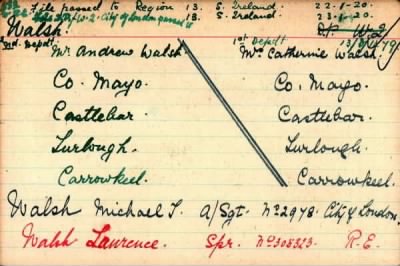 File passed to Region 13. S. Ireland: 22-1-20.
City of London 13. S. Ireland: 
Walsh.
1st Depdt.
Mr Andrew Walsh. Mrs Catherine Walsh.
Co. Mayo. Co. Mayo.
Castlebar. Castlebar.
Turlough. Turlough.
Carrowkeel. Carrowkeel.
Walsh Michael J. A/Sgt. No 2978. City of London.
Walsh Laurence. Spr. No 305323. R.E.